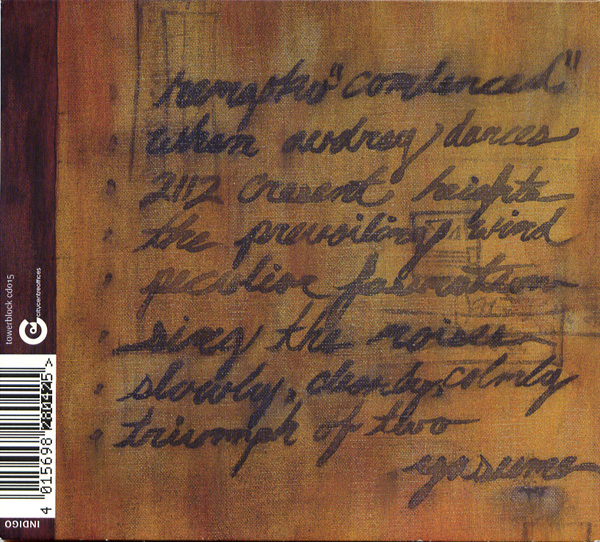 "comdenced"
when audrey dances
2112 cresent heights
the prevailing wind
peculiar
sing the
slowly, clearly, calmly
triumph of two
yasume
towerblock cd015
citycentreoffices
4 015698 280425 >
INDIGO